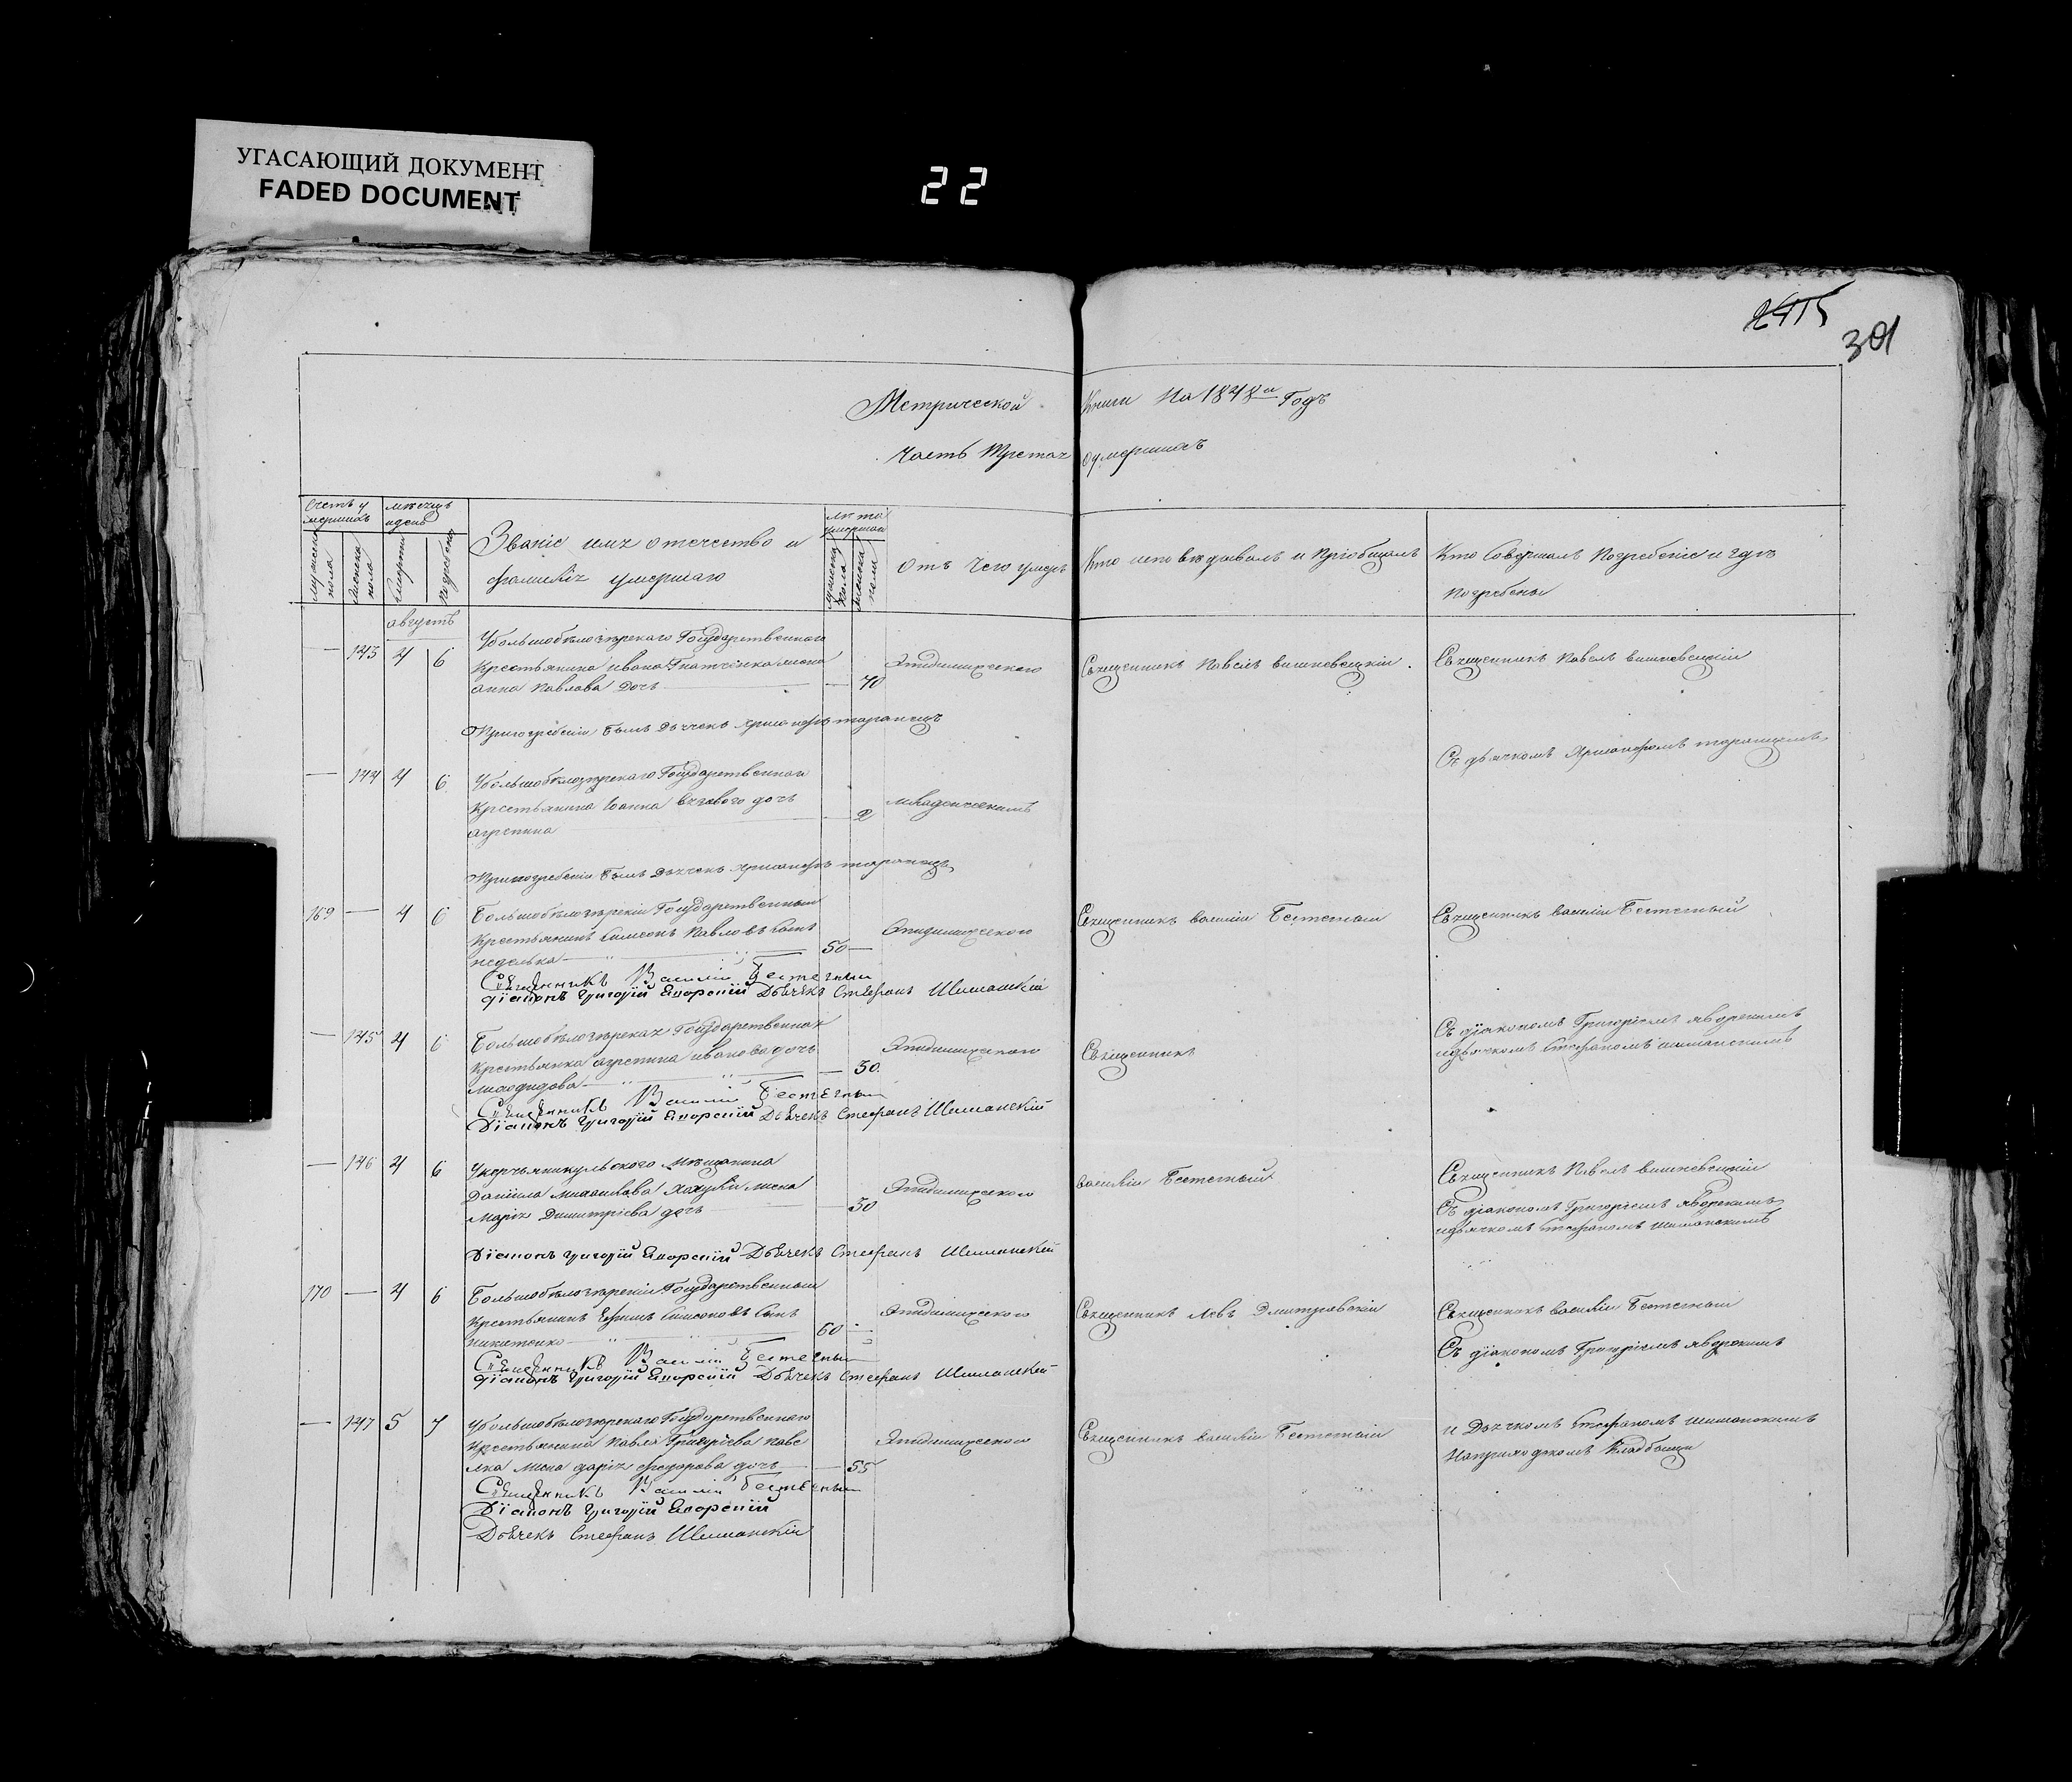 УГАСАЮЩИЙ ДОКУМЕНТ
FADED DOCUMENT
22
2415
301
Метрической Книги На 1848й Годъ
Часть Третая оумершихъ
Счетъ умершихъ
мѣсяцъ и день
мужеска пола
женска пола
смерти
погребения
Званіе имя отечество и фамилія умершаго
лѣта умершаго
мужеска пола
женска пола
Отъ Чего умеръ
Кто исповѣдывалъ и пріобщалъ
Кто Совершалъ Погребеніе и гдѣ
погребены
августъ
143 4 6
Убольшобѣлозѣрскаго Государственнаго
Крестьянина ивана Гнатченка жена
анна Павлова Дочь 70
Эпидимическаго
Священникъ Павелъ вишневецкій
Священникъ Павелъ вишневецкій
Припогребеніи былъ Дьячекъ
Съ дьячкомъ
144 4 6
Убольшобѣлозѣрскаго Государственнаго
Крестьянина Іоанна дочь
агрепина 2
младенческимъ
Припогребеніи былъ Дьячекъ
169 4 6
Большобѣлозѣрскій Государственный
Крестьянинъ Симеонъ Павловъ Сынъ
неделька 50
Эпидимическаго
Священникъ василій Бестетный
Священникъ василій Бестетный
Священникъ Василій Бестетный
Діаконъ Григорій Яворскій Дьячекъ Стефанъ Шиманскій
145 4 6
Большобѣлозѣрская Государственная
Крестьянка агрепина иванова дочь
30
Эпидимическаго
Священникъ
Съ діакономъ Григоріемъ яворскимъ
идьячкомъ Стефаномъ шиманскимъ
Священникъ Василій Бестетный
Діаконъ Григорій Яворскій Дьячекъ Стефанъ Шиманскій
146 4 6
мѣщанина
Даніила михаилова жена
Марія Димитріева дочь 30
Эпидимическаго
василій Бестетный
Священникъ Павелъ вишневецкій
Съ діакономъ Григоріемъ яворскимъ
идьячкомъ Стефаномъ шиманскимъ
Діаконъ Григорій Яворскій Дьячекъ Стефанъ Шиманскій
170 4 6
Большобѣлозѣрскій Государственный
Крестьянинъ Ефимъ Симеоновъ Сынъ
никитенко 60
Эпидимическаго
Священникъ Левъ Дмитровскій
Священникъ василій Бестетный
Съ діакономъ Григоріемъ яворскимъ
Священникъ Василій Бестетный
Діаконъ Григорій Яворскій Дьячекъ Стефанъ Шиманскій
147 5 7
Убольшобѣлозѣрскаго Государственнаго
Крестьянина Павла Григоріева
жена дарія феодорова дочь 55
Эпидимическаго
Священникъ василій Бестетный
и Дьячкомъ Стефаномъ шиманскимъ
Наприходскомъ Кладбищи
Священникъ Василій Бестетный
Діаконъ Григорій Яворскій
Дьячекъ Стефанъ Шиманскій